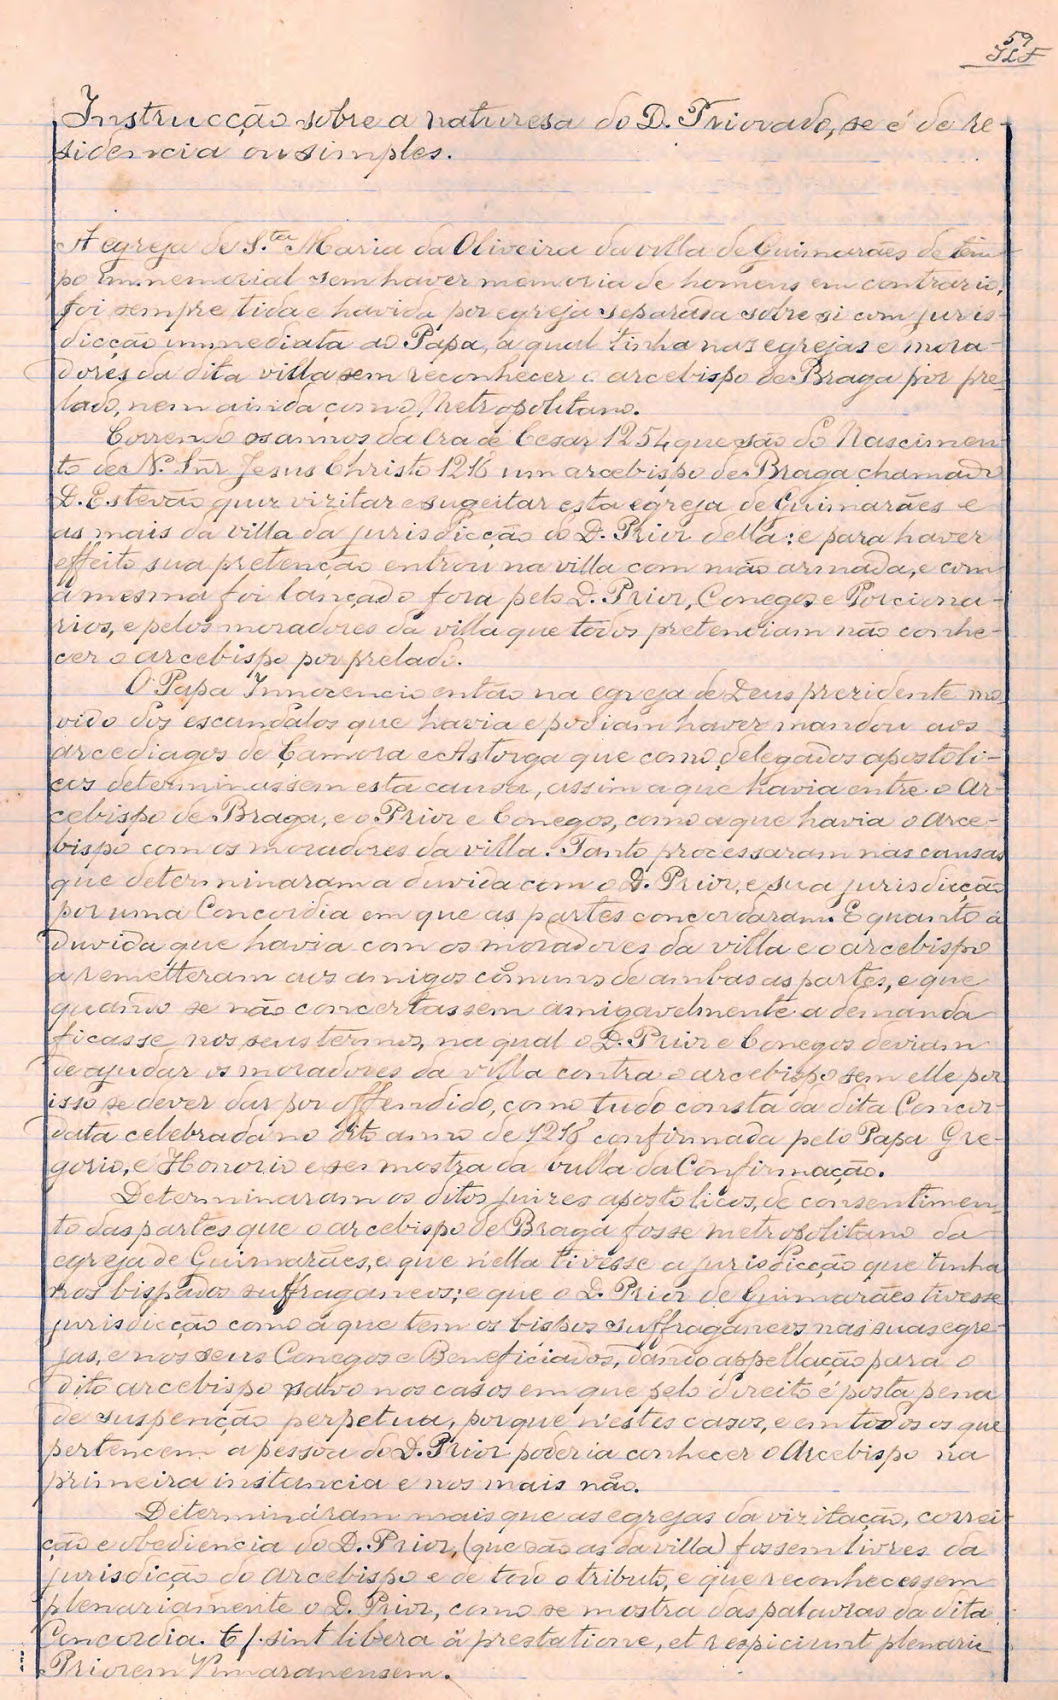 59
JLF
Instrucção sobre a naturesa do D. Priorado, se é de re-
sidencia ou simples.
A egreja de S.ta Maria da Oliveira da villa de Guimarães de tem-
po immemorial sem haver memoria de homens em contrario,
foi sempre tida e havida por egreja separada sobre si com juris-
dicção immediata ao Papa, a qual tinha nas egrejas e mora-
dores da dita villa sem reconhecer o arcebispo de Braga por pre-
lado, nem ainda como Metropolitano.
Correndo os annos da Era de Cesar 1254 que são do Nascimen-
to de N. Snr Jesus Christo 1216 um arcebispo de Braga chamado
D. Estevão quiz vizitar e sugeitar esta egreja de Guimarães e
as mais da villa da jurisdicção do D. Prior della: e para haver
effeito sua pretenção entrou na villa com mão armada, e com
a mesma foi lançado fora pelo D. Prior, Conegos e Porciona-
rios, e pelos moradores da villa que todos pretendiam não conhe-
cer o arcebispo por prelado.
O Papa Innocencio então na egreja de Deus prezidente mo-
vido dos escandalos que havia e podiam haver mandou aos
arcediagos de Çamora e Astorga que como delegados apostoli-
cos determinassem esta causa, assim a que havia entre o Ar-
cebispo de Braga, e o Prior e Conegos, como a que havia o Arce-
bispo com os moradores da villa. Tanto processaram nas causas
que determinaram a duvida com o D. Prior, e sua jurisdicção
por uma Concordia em que as partes concordaram. E quanto á
duvida que havia com os moradores da villa e o arcebispo
a remetteram aos amigos comuns de ambas as partes, e que
quando se não concertassem amigavelmente a demanda
ficasse nos seus termos, na qual o D. Prior e Conegos deviam
de ajudar os moradores da villa contra o arcebispo sem elle por
isso se dever dar por offendido, como tudo consta da dita Concor-
data celebrada no dito anno de 1216 confirmada pelo Papa Gre-
gorio, e Honorio e se mostra da bulla da Confirmação.
Determinaram os ditos juizes apostolicos, de consentimen-
to das partes que o arcebispo de Braga fosse metropolitano da
egreja de Guimarães, e que n'ella tivesse a jurisdicção que tinha
nos bispados suffraganeos; e que o D. Prior de Guimarães tivesse
jurisdicção como a que tem os bispos suffraganeos nas suas egre-
jas, e nos seus Conegos e Beneficiados, dando appellação para o
dito arcebispo salvo nos casos em que pelo direito é posta pena
de suspenção perpetua, porque n'estes casos, e em todos os que
pertencem a pessoa do D. Prior poderia conhecer o Arcebispo na
primeira instancia e nos mais não.
Determináram mais que as egrejas da vizitação, correi-
ção e obediencia do D. Prior, (que são as da villa) fossem livres da
jurisdição do arcebispo e de todo o tributo, e que reconhecessem
plenariamente o D. Prior, como se mostra das palavras da dita
Concordia. sint libera á prestatione, et respiciunt plenarie
Priorem Vimaranensem.